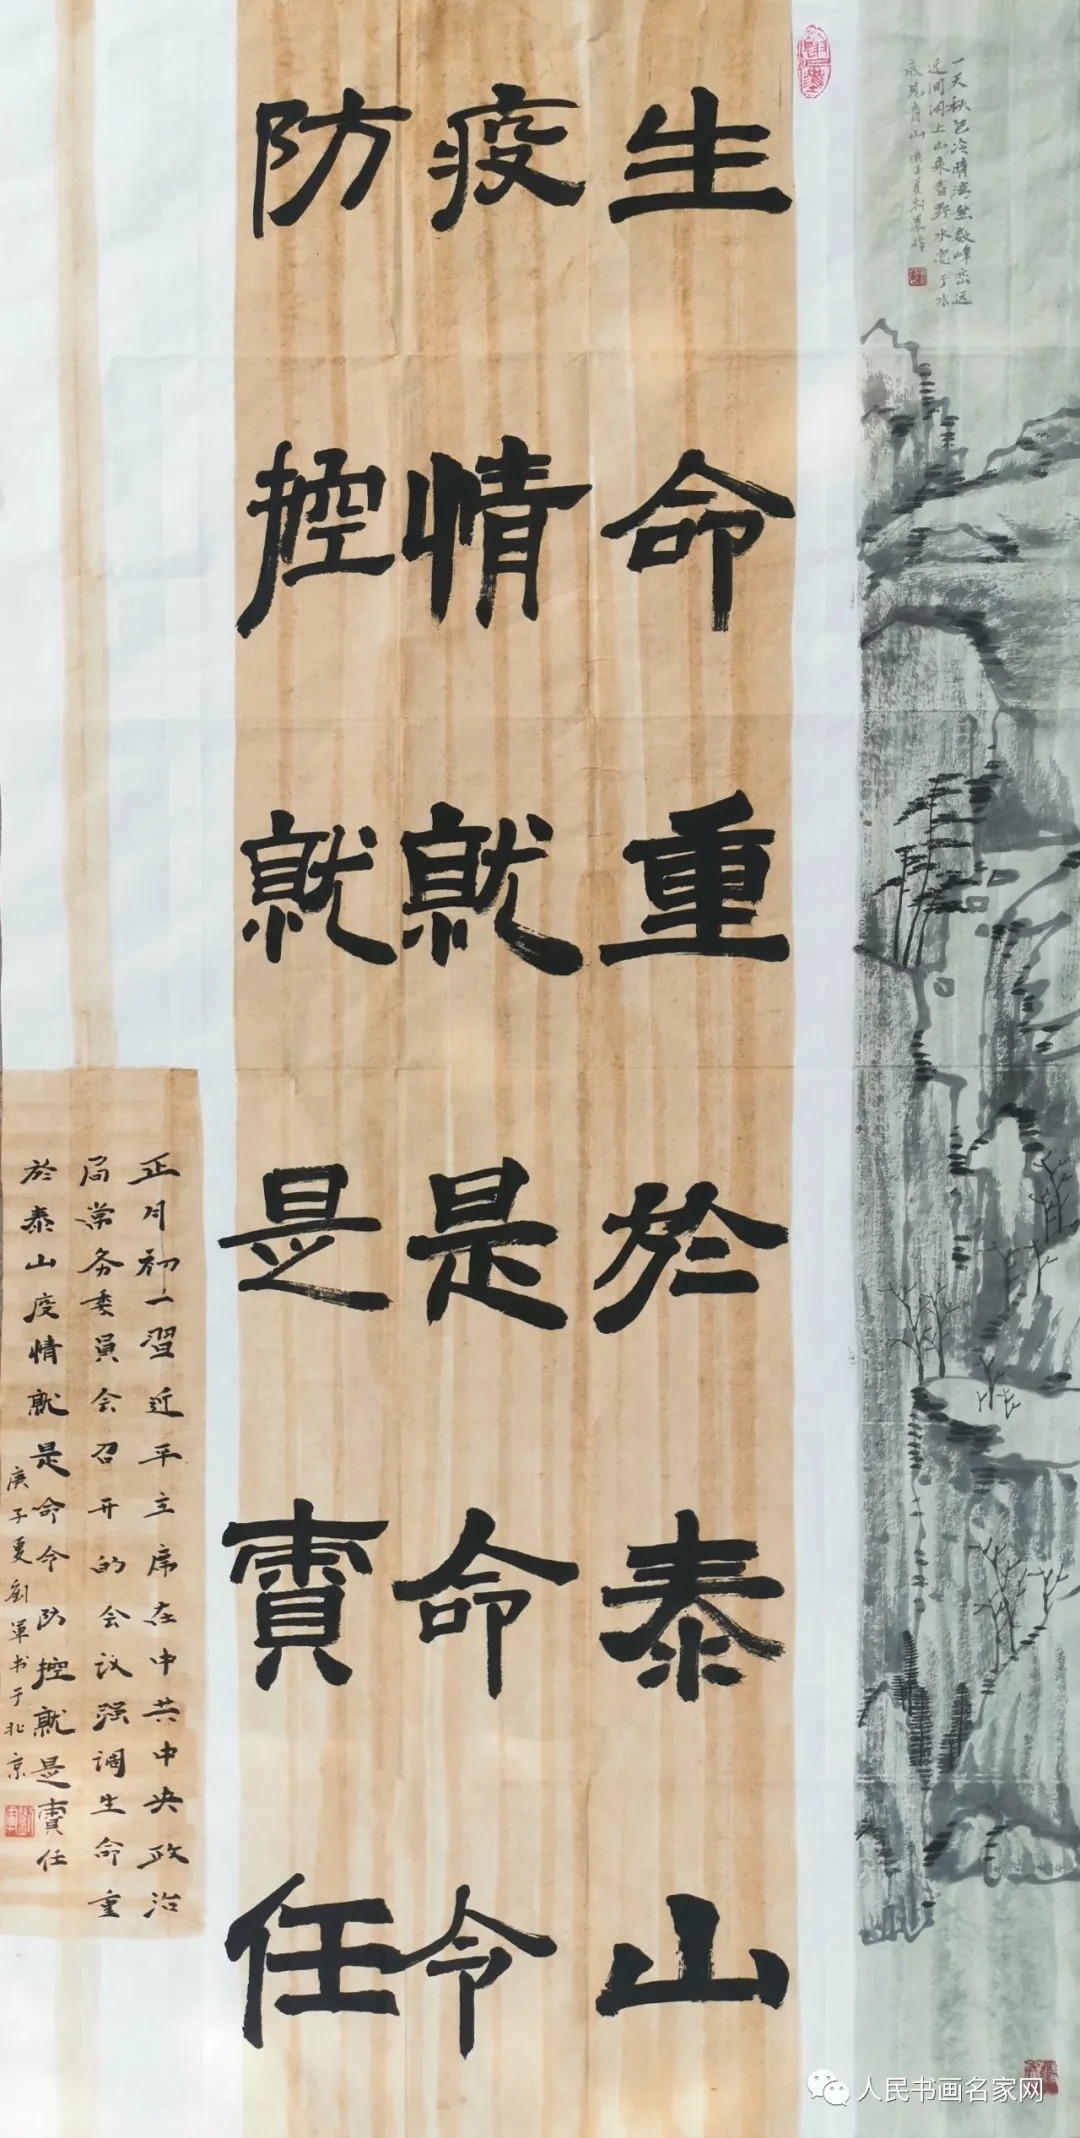 生命重於泰山
疫情就是命令
防控就是責任
正月初一習近平主席在中共中央政治
局常务委員会召开的会议强调生命重
於泰山疫情就是命令防控就是責任
庚子夏劉軍书于北京
一天秋色冷晴湾無数峰峦远
近间闲上山来看野水忽于水
底見青山
人民书画名家网